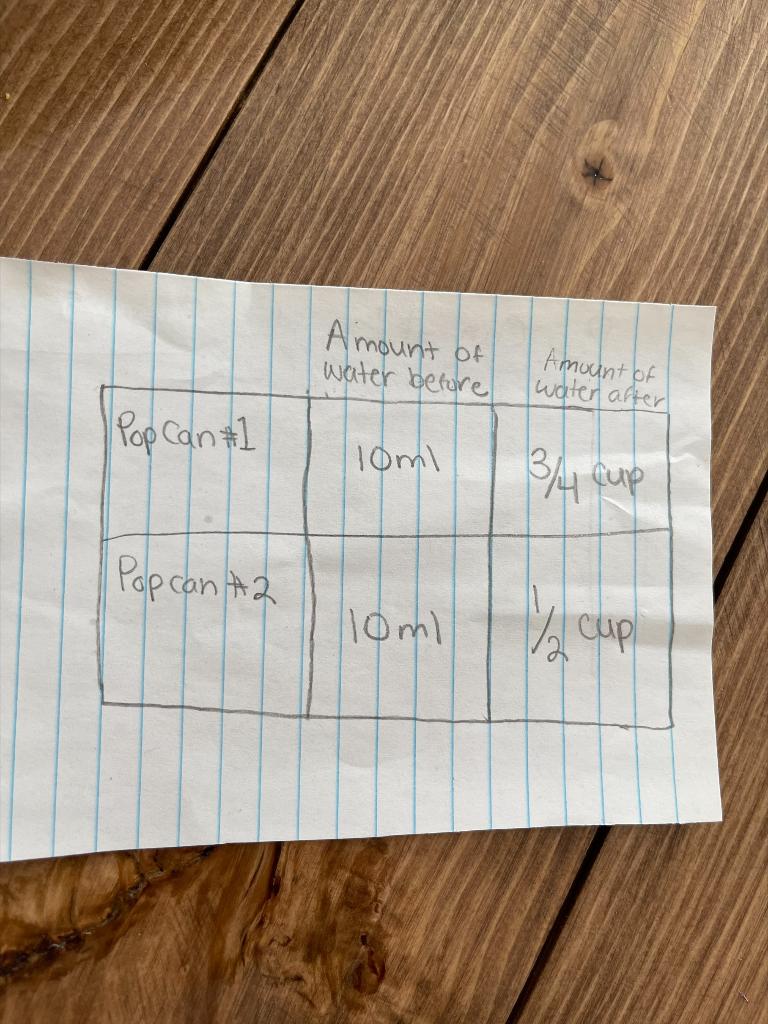 Amount of
water before
Amount of
water after
Pop Can #1
10ml
3/4 cup
Pop can #2
10ml
1/2 cup